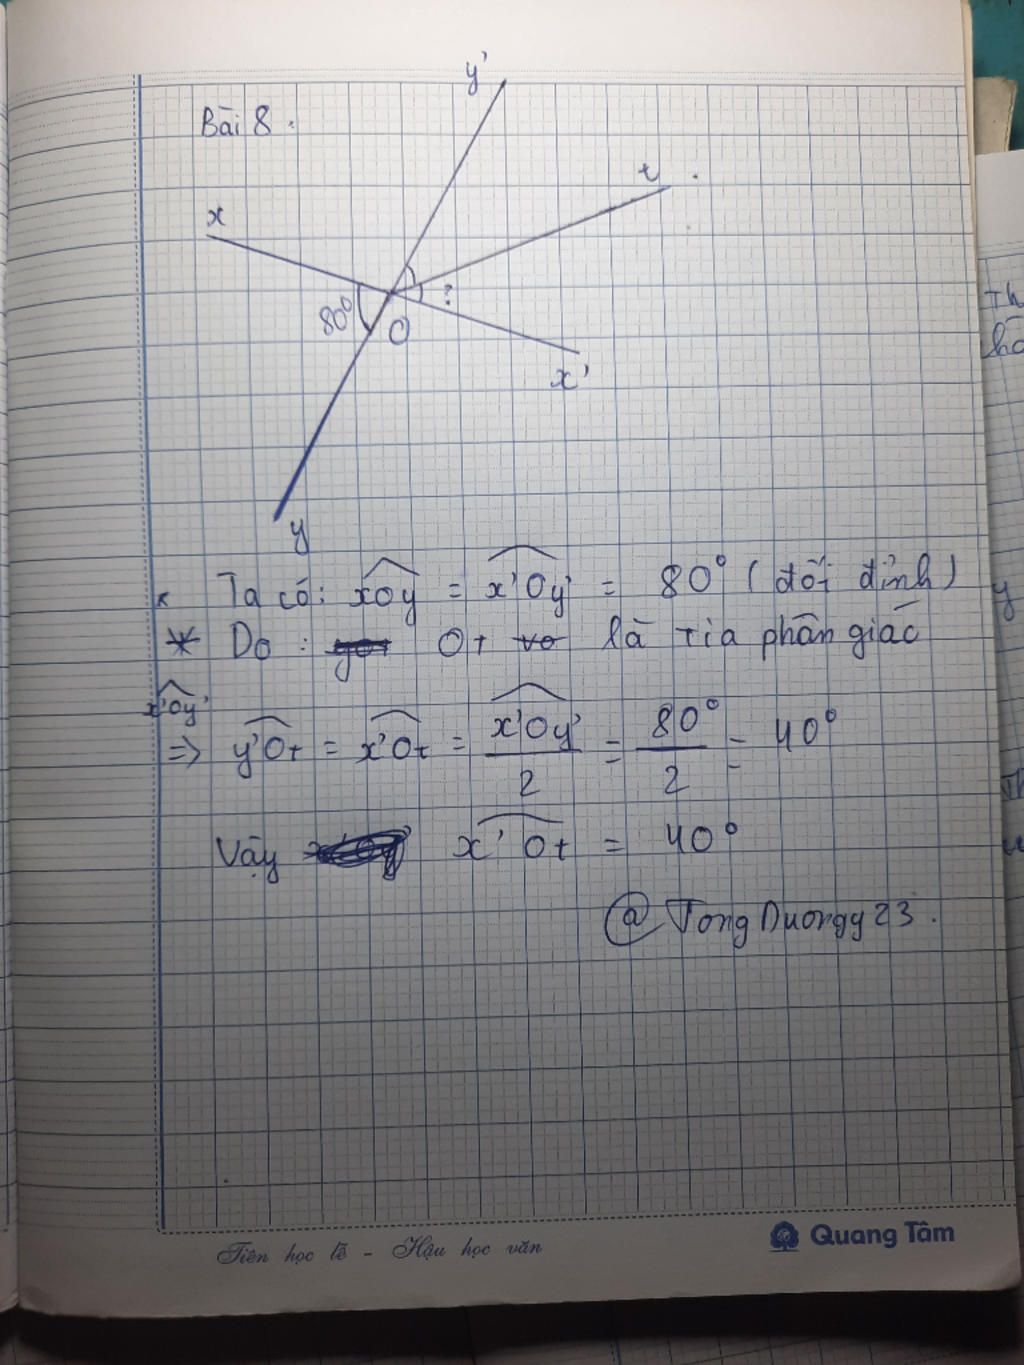 Bài 8.
y'
t
x
80°
?
O
x'
y
* Ta có: xOy = x'Oy' = 80° (đối đỉnh)
* Do: Ot là tia phân giác
x'Oy'
=> y'Ot = x'Ot = x'Oy'/2 = 80°/2 = 40°
Vậy x'Ot = 40°
@TongDuongy23.
Th
y
Th
Tiên học lễ - Hậu học văn
Quang Tâm